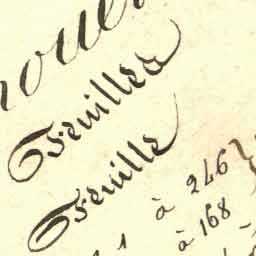 Feuilles
Feuille
1 à 246
à 168